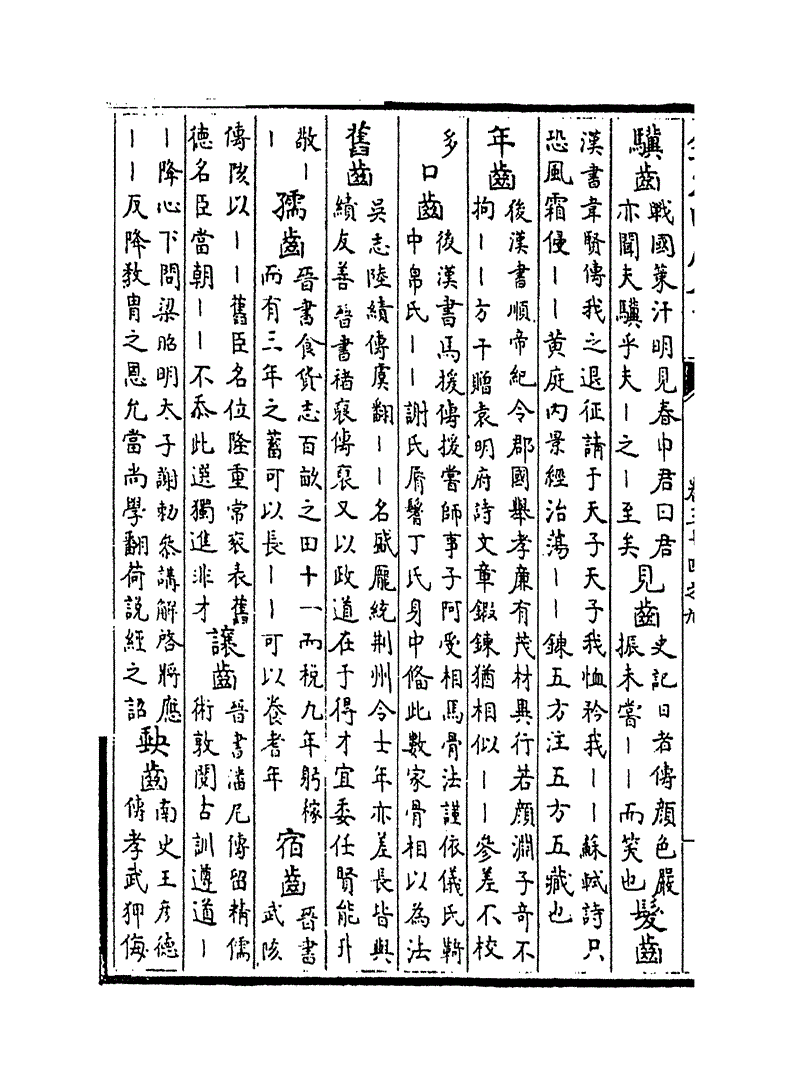 驥齒
戰國策汗明見春申君曰君
亦聞夫驥乎夫丨之丨至矣
見齒
史記日者傳顔色嚴
振未嘗丨丨而笑也
髮齒
漢書韋賢傳我之退征請于天子天子我恤矜我丨丨蘇軾詩只
恐風霜侵丨丨黄庭内景經治蕩丨丨錬五方注五方五藏也
年齒
後漢書順帝紀令郡國舉孝廉有茂材異行若顔淵子奇不
拘丨丨方干贈袁明府詩文章鍛鍊猶相似丨丨參差不校
多
口齒
後漢書馬援傳援嘗師事子阿受相馬骨法謹依儀氏䩭
中帛氏丨丨謝氏脣鬐丁氏身中備此數家骨相以為法
舊齒
吳志陸績傳虞翻丨丨名盛龎統荆州令士年亦差長皆與
績友善晉書褚裒傳裒又以政道在于得才宜委任賢能升
敬丨
丨
孺齒
晉書食貨志百畝之田十一而税九年躬稼
而有三年之蓄可以長丨丨可以養耆年
宿齒
晉書
武陔
傳陔以丨丨舊臣名位隆重常裒表舊
德名臣當朝丨丨不忝此選獨進非才
讓齒
晉書潘尼傳留精儒
術敦閱古訓遵道丨
丨降心下問梁昭明太子謝勅參講解啓將應
丨丨反降教胄之恩允當尚學翻荷説經之詔
缺齒
南史王彥德
傳孝武狎侮